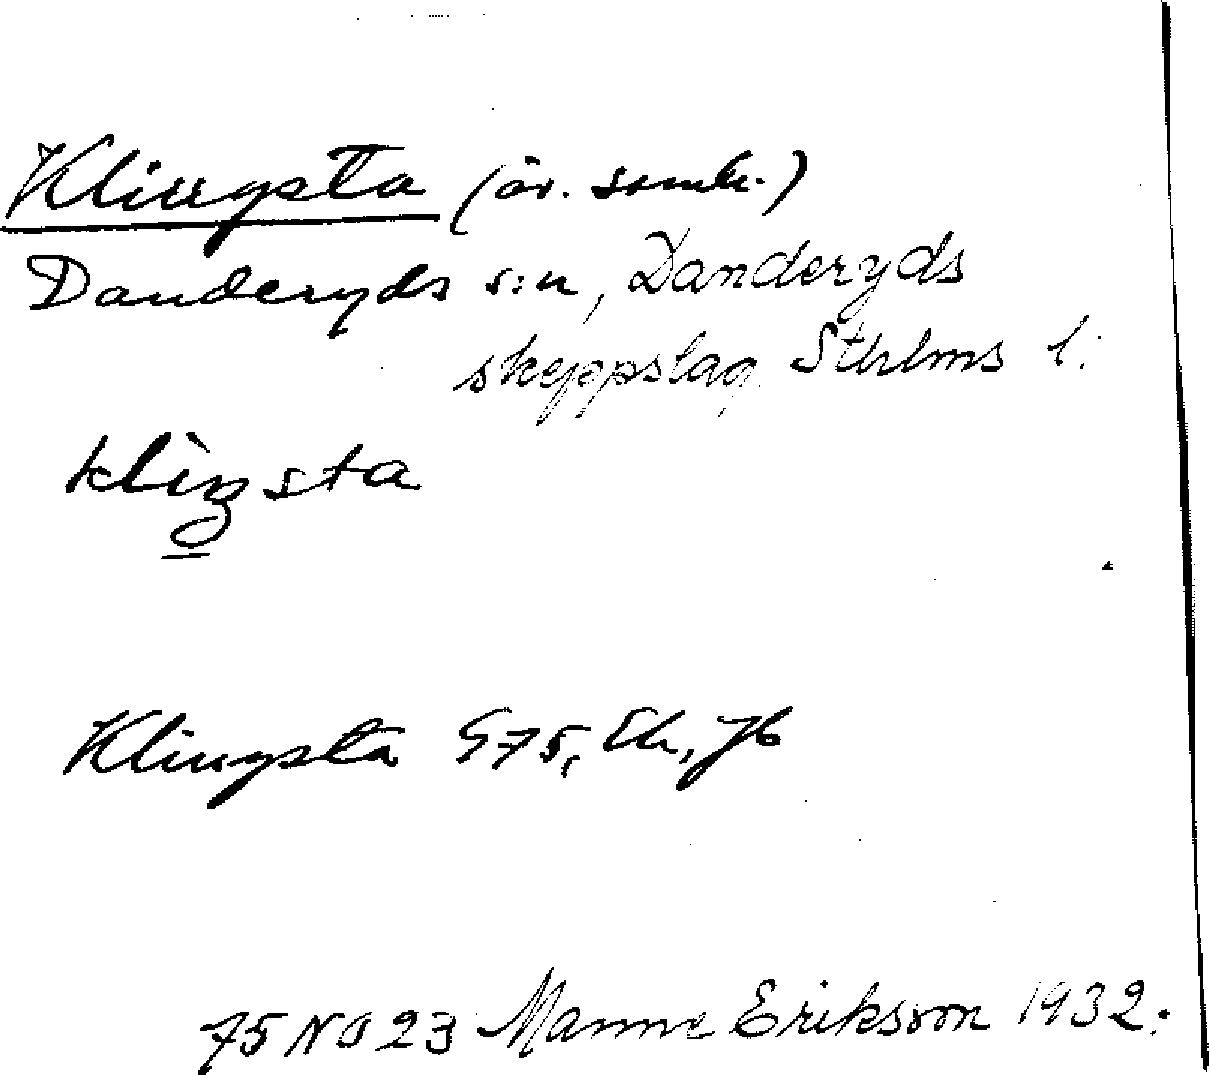 Klingsta (äv. samh.)
Danderyds s:n, Danderyds
skeppslag, Sthlms l.
klìŋsta
Klingsta G75, Ek, Jb
75 NO 23 Manne Eriksson 1932.